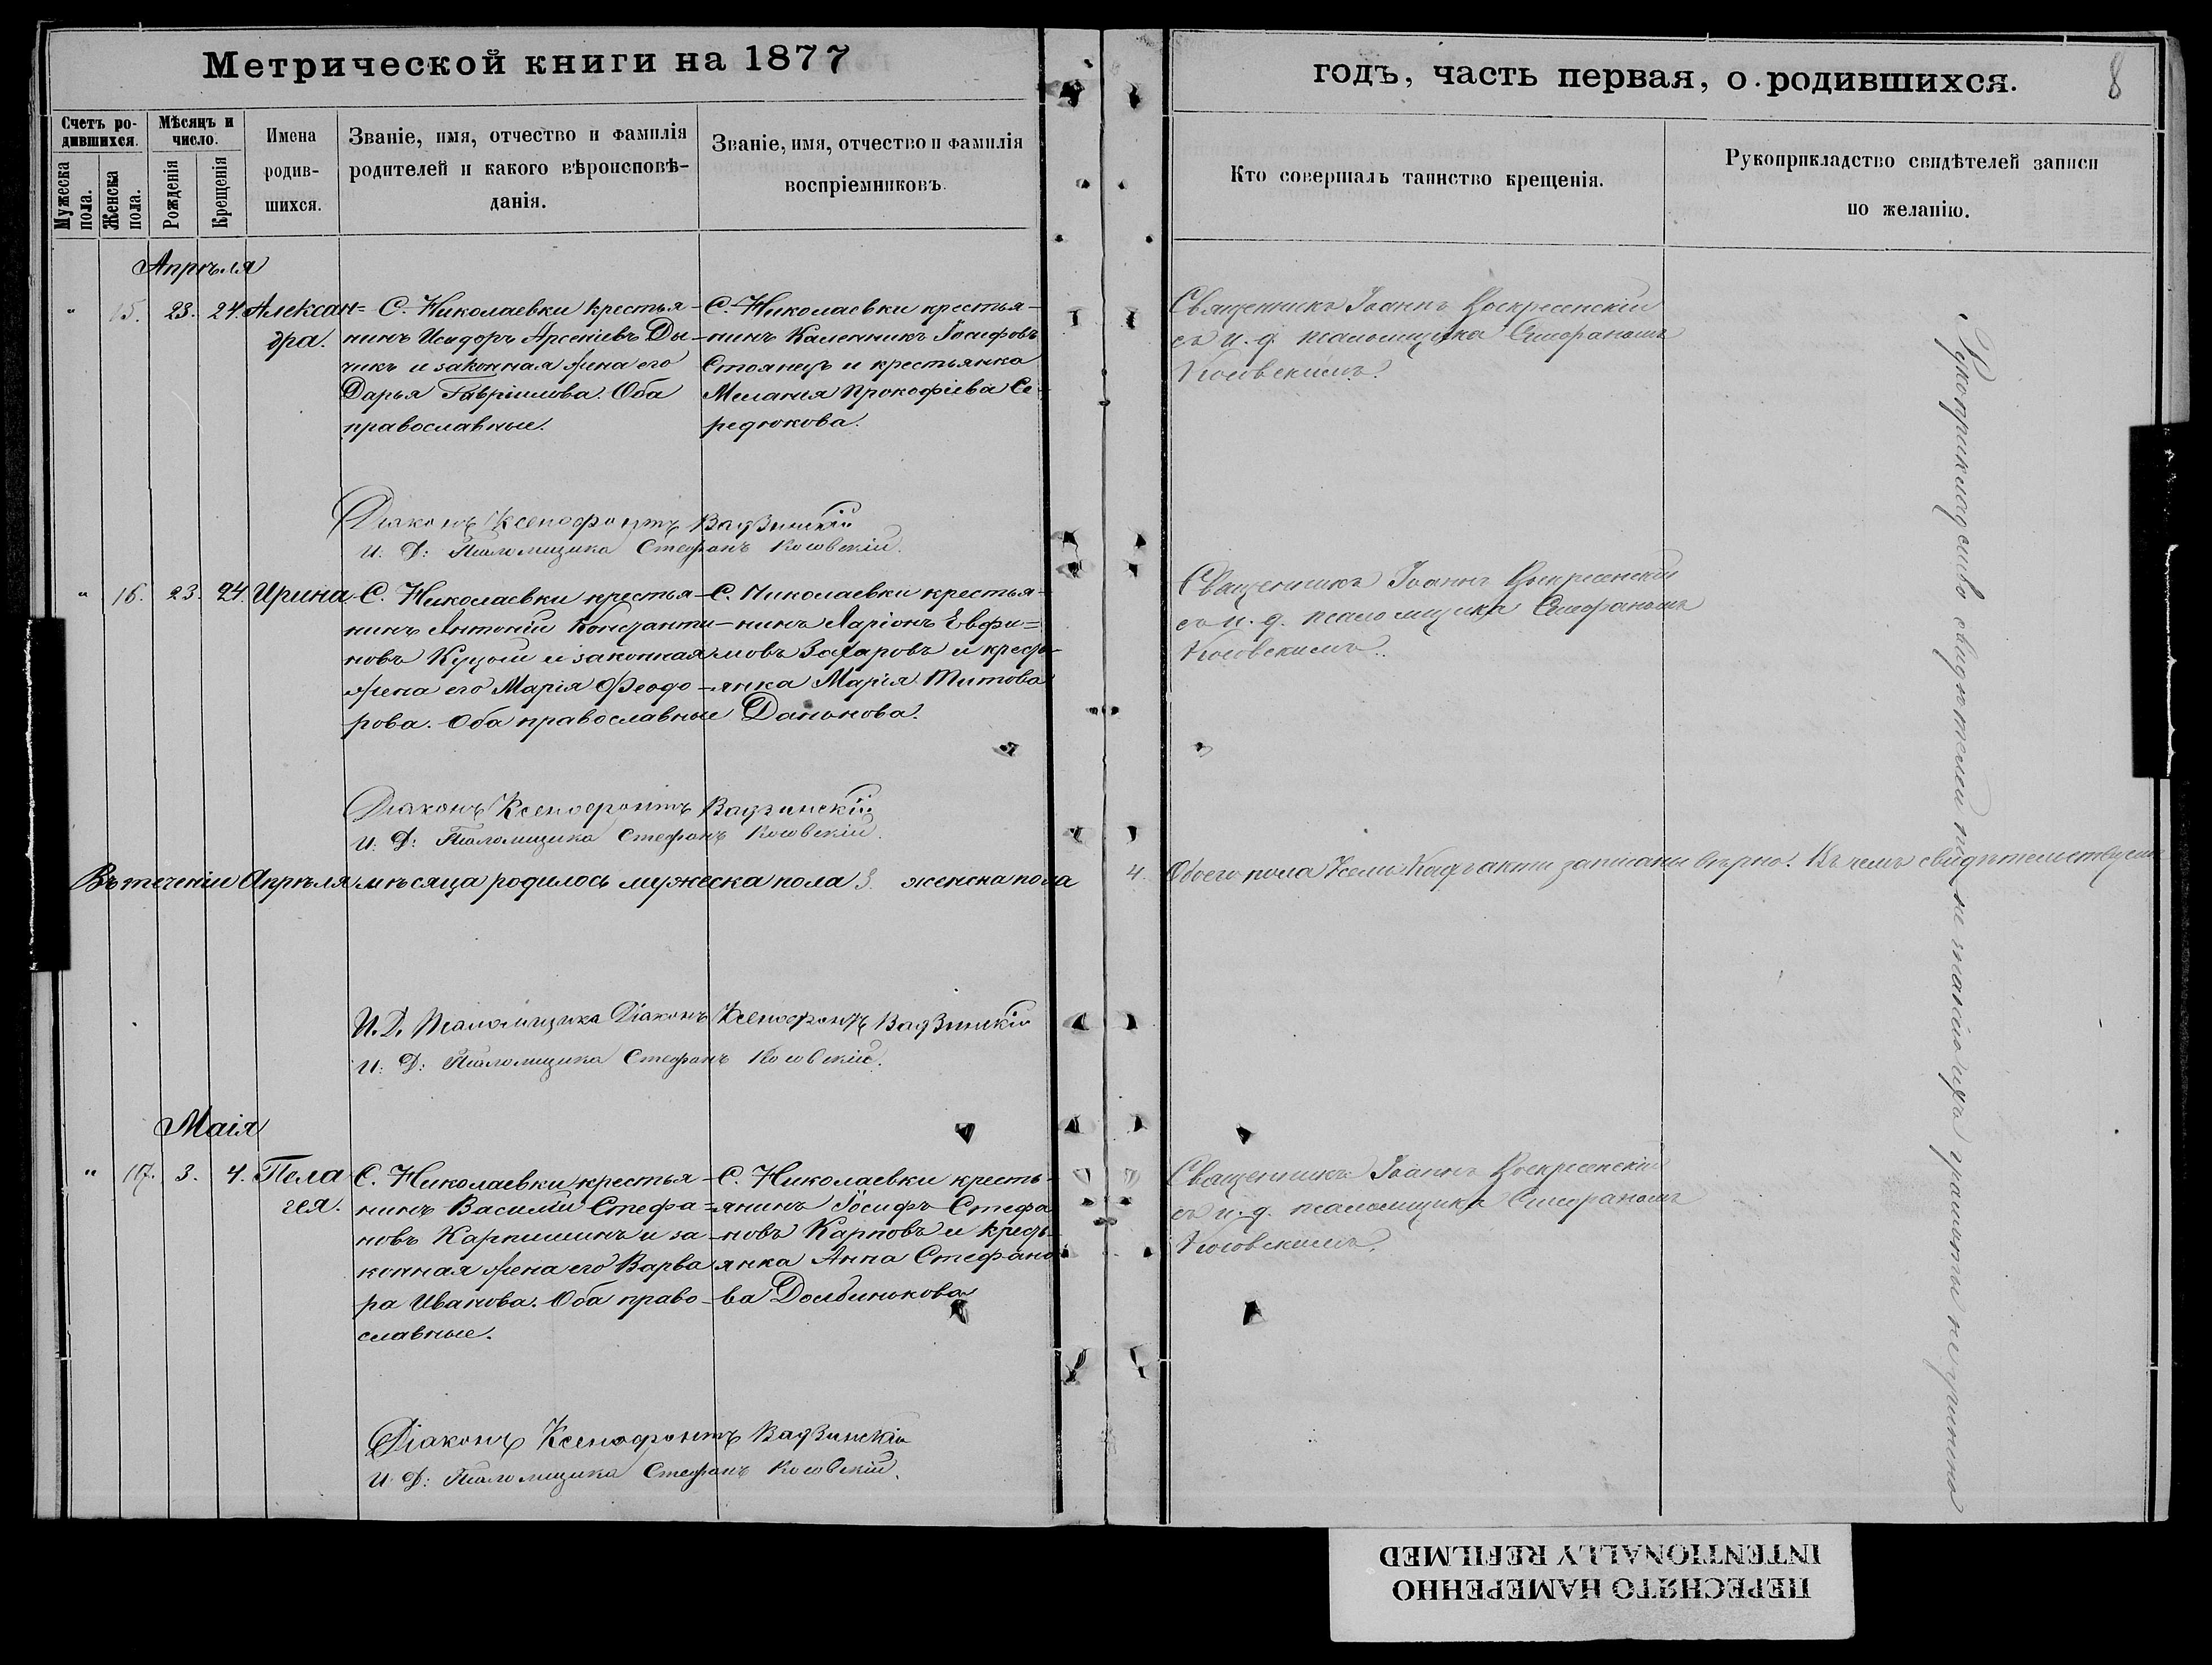 Метрической книги на 1877
годъ, часть первая, о родившихся.
8
Счетъ ро-
дившихся.
Мужеска
пола.
Женска
пола.
Мѣсяцъ и
число.
Рожденія
Крещенія
Имена
родив-
шихся.
Званіе, имя, отчество и фамилія
родителей и какого вѣроисповѣ-
данія.
Званіе, имя, отчество и фамилія
воспріемниковъ.
Кто совершалъ таинство крещенія.
Рукоприкладство свидѣтелей записи
по желанію.
Апрѣля
" 15. 23. 24. Алексан=
дра.
С. Николаевки крестья-
нинъ Исидоръ Арсеніевъ Ды-
чикъ и законная жена его
Дарья Гавріилова. Оба
православные.
С. Николаевки крестья-
нинъ Каленникъ Іосифовъ
Стоянецъ и крестьянка
Меланія Прокофіева Се-
редюкова.
Священникъ Іоаннъ Воскресенскій
съ и. д. псаломщика Стефаномъ
Косовскимъ.
Діаконъ Ксенофонтъ Вадзинскій
И. Д: Псаломщика Стефанъ Косовскій.
" 16. 23. 24. Ирина
С. Николаевки крестья-
нинъ Антоній Константи-
новъ Куцый и законная
жена его Марія Феодо-
рова. Оба православные
С. Николаевки крестья-
нинъ Ларіонъ Евфи=
мовъ Захаровъ и кресть-
янка Марія Титова
Данькова.
Священникъ Іоаннъ Воскресенскій
съ и. д. псаломщика Стефаномъ
Косовскимъ.
Діаконъ Ксенофонтъ Вадзинскій
И. Д: Псаломщика Стефанъ Косовскій.
Въ теченіи Апрѣля мѣсяца родилось мужеска пола 3. женска пола 4. Обоего пола семь акти записаны вѣрно. Въ чемъ свидѣтельствуемъ
И. Д. Псаломщика Діаконъ Ксенофонтъ Вадзинскій
И: Д: Псаломщика Стефанъ Косовскій.
Маія
" 17. 3. 4. Пела
гея.
С. Николаевки крестья-
нинъ Василій Стефа=
новъ Карпишинъ и за-
конная жена его Варва
ра Иванова. Оба право-
славные.
С. Николаевки кресть-
янинъ Іосифъ Стефа
новъ Карповъ и кресть-
янка Анна Стефано
ва Долбинюкова
Священникъ Іоаннъ Воскресенскій
съ и. д. псаломщика Стефаномъ
Косовскимъ.
Діаконъ Ксенофонтъ Вадзинскій
И. Д: Псаломщика Стефанъ Косовскій.
Рукоприкладство свидѣтелей по не знанію ихъ грамоты не учинено
ПЕРЕСНЯТО НАМЕРЕННО
INTENTIONALLY REFILMED